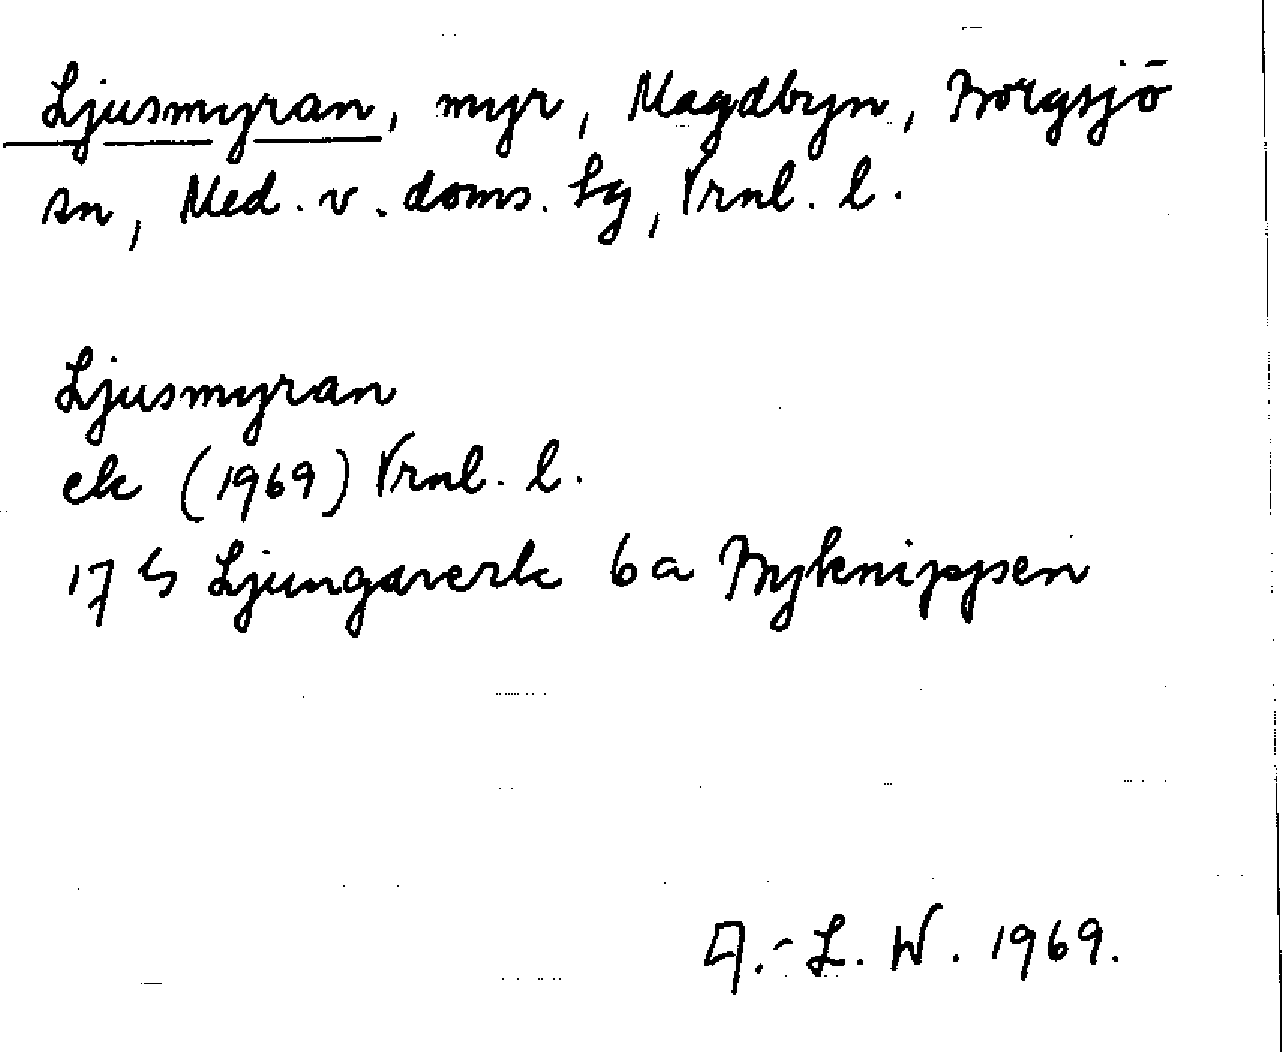 Ljusmyran, myr, Magdbyn, Borgsjö
sn, Med. v. doms. tg, Vrnl. l.
Ljusmyran
ek (1969) Vrnl. l.
17 G Ljungaverk 6a Myknippen
A.-L. W. 1969.